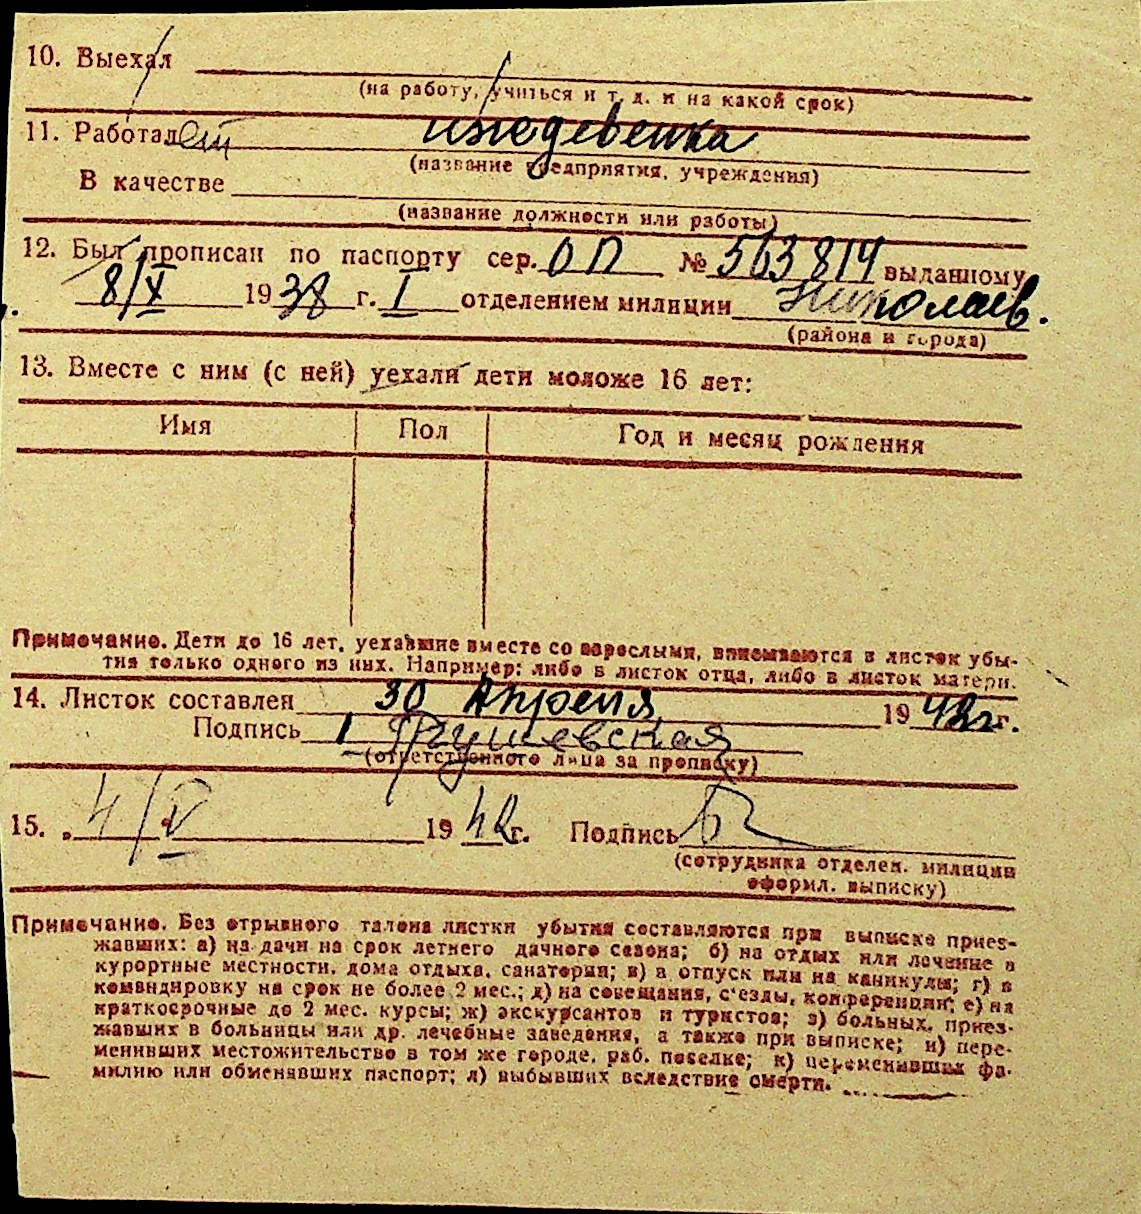 10. Выехал
(на работу, учиться и т. д. и на какой срок)
11. Работал ет иждевенка
(название предприятия, учреждения)
В качестве
(название должности или работы)
12. Был прописан по паспорту сер. ОП № 563814 выданному
8/X 1938 г. I отделением милиции Николаев.
(района и города)
13. Вместе с ним (с ней) уехали дети моложе 16 лет:
Имя Пол Год и месяц рождения
Примечание. Дети до 16 лет, уехавшие вместе со взрослыми, вписываются в листок убы-
тия только одного из них. Например: либо в листок отца, либо в листок матери.
14. Листок составлен 30 Апреля 1942 г.
Подпись Грушевская
(ответственного лица за прописку)
15. „ 4/V 1942 г. Подпись
(сотрудника отделен. милиции
оформл. выписку)
Примечание. Без отрывного талона листки убытия составляются при выписке приез-
жавших: а) на дачи на срок летнего дачного сезона; б) на отдых или лечение в
курортные местности, дома отдыха, санатории; в) в отпуск или на каникулы; г) в
командировку на срок не более 2 мес.; д) на совещания, с'езды, конференции; е) на
краткосрочные до 2 мес. курсы; ж) экскурсантов и туристов; з) больных, приез-
жавших в больницы или др. лечебные заведения, а также при выписке; и) пере-
менивших местожительство в том же городе, раб. поселке; к) переменивших фа-
милию или обменявших паспорт; л) выбывших вследствие смерти.